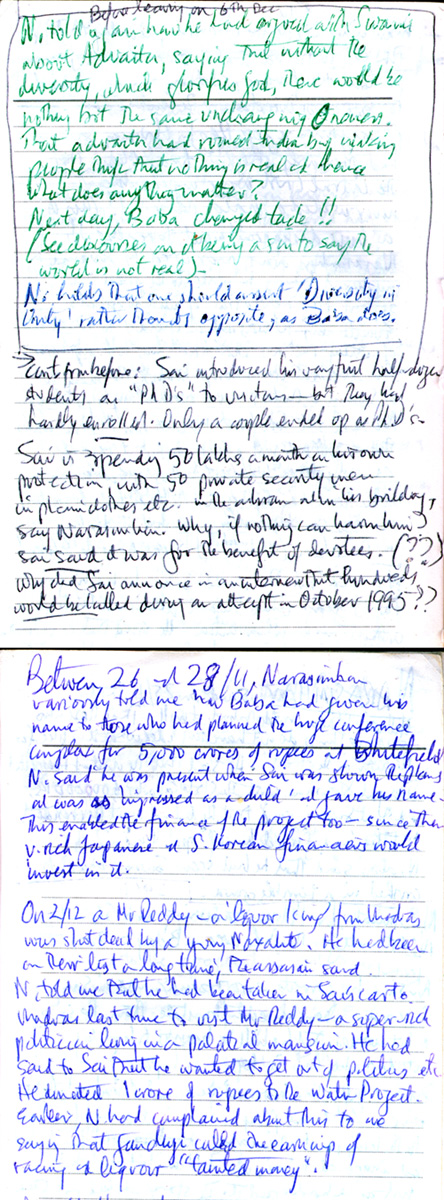 Before leaving on 6th Dec
N. told again how he had argued with Swami
about Advaita, saying that without the
diversity, which glorifies God, there would be
nothing but the same unchanging Oneness.
That advaita had ruined India by making
people think that nothing is real and hence
what does anything matter?
Next day, Baba changed tack!!
(See discourses on it being a sin to say the
world is not real)-
N. holds that one should assert 'Diversity in
Unity' rather than its opposite, as Baba does.
Cont. from before: Sai introduced his very first half-dozen
students as "PhD's" to visitors - but they had
hardly enrolled. Only a couple ended up as PhD's
Sai is spending 50 lakhs a month on his own
protection with 50 private security men
in plain clothes etc. in the ashram and in his building,
say Narasimhan. Why, if nothing can harm him?
Sai said it was for the benefit of devotees. (??)
Why did Sai announce in an interview that hundreds
would be killed during an attempt in October 1995??
Between 26 and 28/11, Narasimhan
variously told me how Baba had given his
name to those who had planned the huge conference
complex for 5,000 crores of rupees at Whitefield
N. said he was present when Sai was shown the plans
and was as 'impressed as a child' and gave his name.
This enabled the finance of the project too - since then
v. rich Japanese and S. Korean financiers would
invest in it.
On 2/12 a Mr Reddy - a liquor king from Madras
was shot dead by a young Naxalite. He had been
on their list a long time, the assassin said.
N. told me that he had been taken in Sai's car to
Madras last time to visit Mr Reddy - a super-rich
politician living in a palatial mansion. He had
said to Sai that he wanted to get out of politics etc
He donated 1 crore of rupees to the Water Project.
Earlier, N had complained about this to me
saying that Gandhiji called the earnings of
racing and liquour "tainted money".